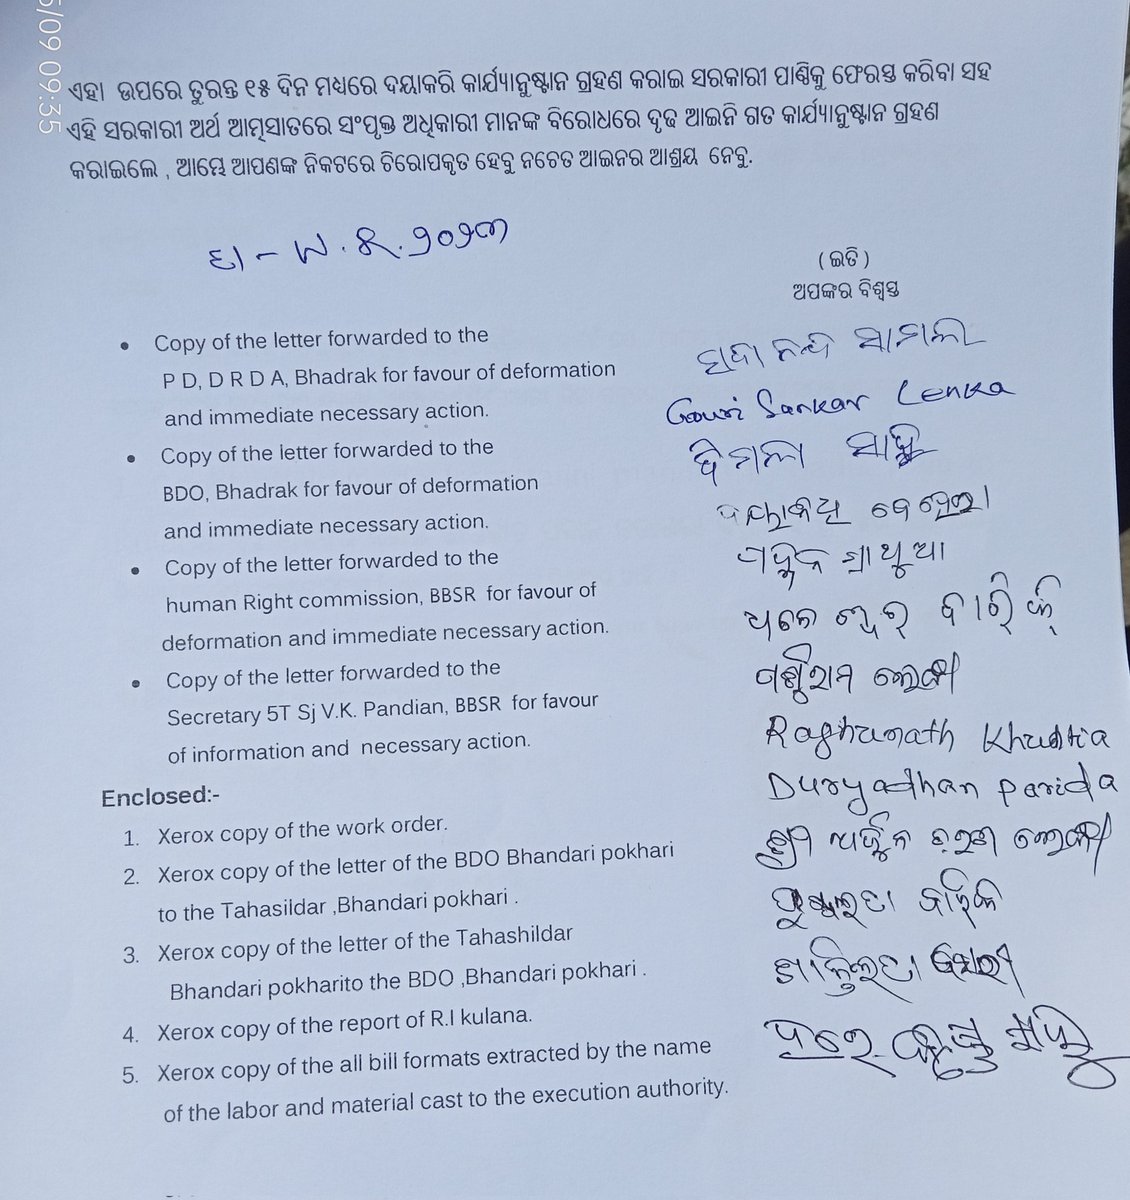 5/09 09:35
ଏହା ଉପରେ ତୁରନ୍ତ ୧୫ ଦିନ ମଧ୍ୟରେ ଦୟାକରି କାର୍ଯ୍ୟାନୁଷ୍ଟାନ ଗ୍ରହଣ କରାଇ ସରକାରୀ ପାଣ୍ଠିକୁ ଫେରସ୍ତ କରିବା ସହ
ଏହି ସରକାରୀ ଅର୍ଥ ଆତ୍ମସାତରେ ସଂପୃକ୍ତ ଅଧିକାରୀ ମାନଙ୍କ ବିରୋଧରେ ଦୃଢ ଆଇନି ଗତ କାର୍ଯ୍ୟାନୁଷ୍ଟାନ ଗ୍ରହଣ
କରାଇଲେ , ଆମ୍ଭେ ଆପଣଙ୍କ ନିକଟରେ ଚିରୋପକୃତ ହେବୁ ନଚେତ ଆଇନର ଆଶ୍ରୟ ନେବୁ.
୨୦୨୩
( ଇତି )
ଅପଙ୍କର ବିଶ୍ୱସ୍ତ
• Copy of the letter forwarded to the
P D, D R D A, Bhadrak for favour of deformation
and immediate necessary action.
• Copy of the letter forwarded to the
BDO, Bhadrak for favour of deformation
and immediate necessary action.
• Copy of the letter forwarded to the
human Right commission, BBSR for favour of
deformation and immediate necessary action.
• Copy of the letter forwarded to the
Secretary 5T Sj V.K. Pandian, BBSR for favour
of information and necessary action.
Enclosed:-
1. Xerox copy of the work order.
2. Xerox copy of the letter of the BDO Bhandari pokhari
to the Tahasildar ,Bhandari pokhari .
3. Xerox copy of the letter of the Tahashildar
Bhandari pokharito the BDO ,Bhandari pokhari .
4. Xerox copy of the report of R.I kulana.
5. Xerox copy of the all bill formats extracted by the name
of the labor and material cast to the execution authority.
ସାମଲ
Gouri Sankar Lenka
ବେହେରା
Raghunath Khuntia
Duryadhan parida